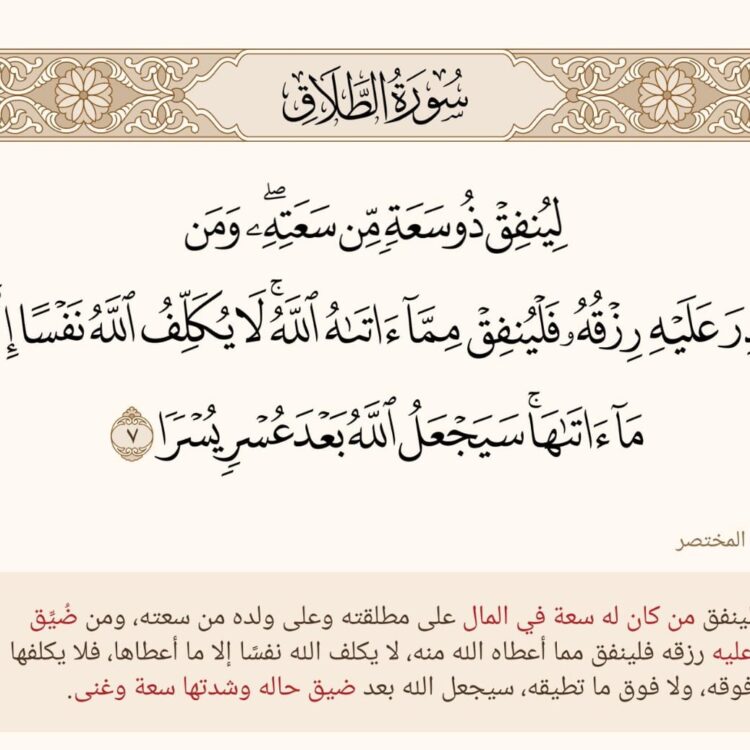 سُورَةُ الطَّلَاقِ
لِيُنفِقۡ ذُو سَعَةٖ مِّن سَعَتِهِۦۖ وَمَن
عَلَيۡهِ رِزۡقُهُۥ فَلۡيُنفِقۡ مِمَّآ ءَاتَىٰهُ ٱللَّهُۚ لَا يُكَلِّفُ ٱللَّهُ نَفۡسًا
مَآ ءَاتَىٰهَاۚ سَيَجۡعَلُ ٱللَّهُ بَعۡدَ عُسۡرٖ يُسۡرٗا ٧
المختصر
لينفق من كان له سعة في المال على مطلقته وعلى ولده من سعته، ومن ضُيِّق
عليه رزقه فلينفق مما أعطاه الله منه، لا يكلف الله نفسًا إلا ما أعطاها، فلا يكلفها
فوقه، ولا فوق ما تطيقه، سيجعل الله بعد ضيق حاله وشدتها سعة وغنى.